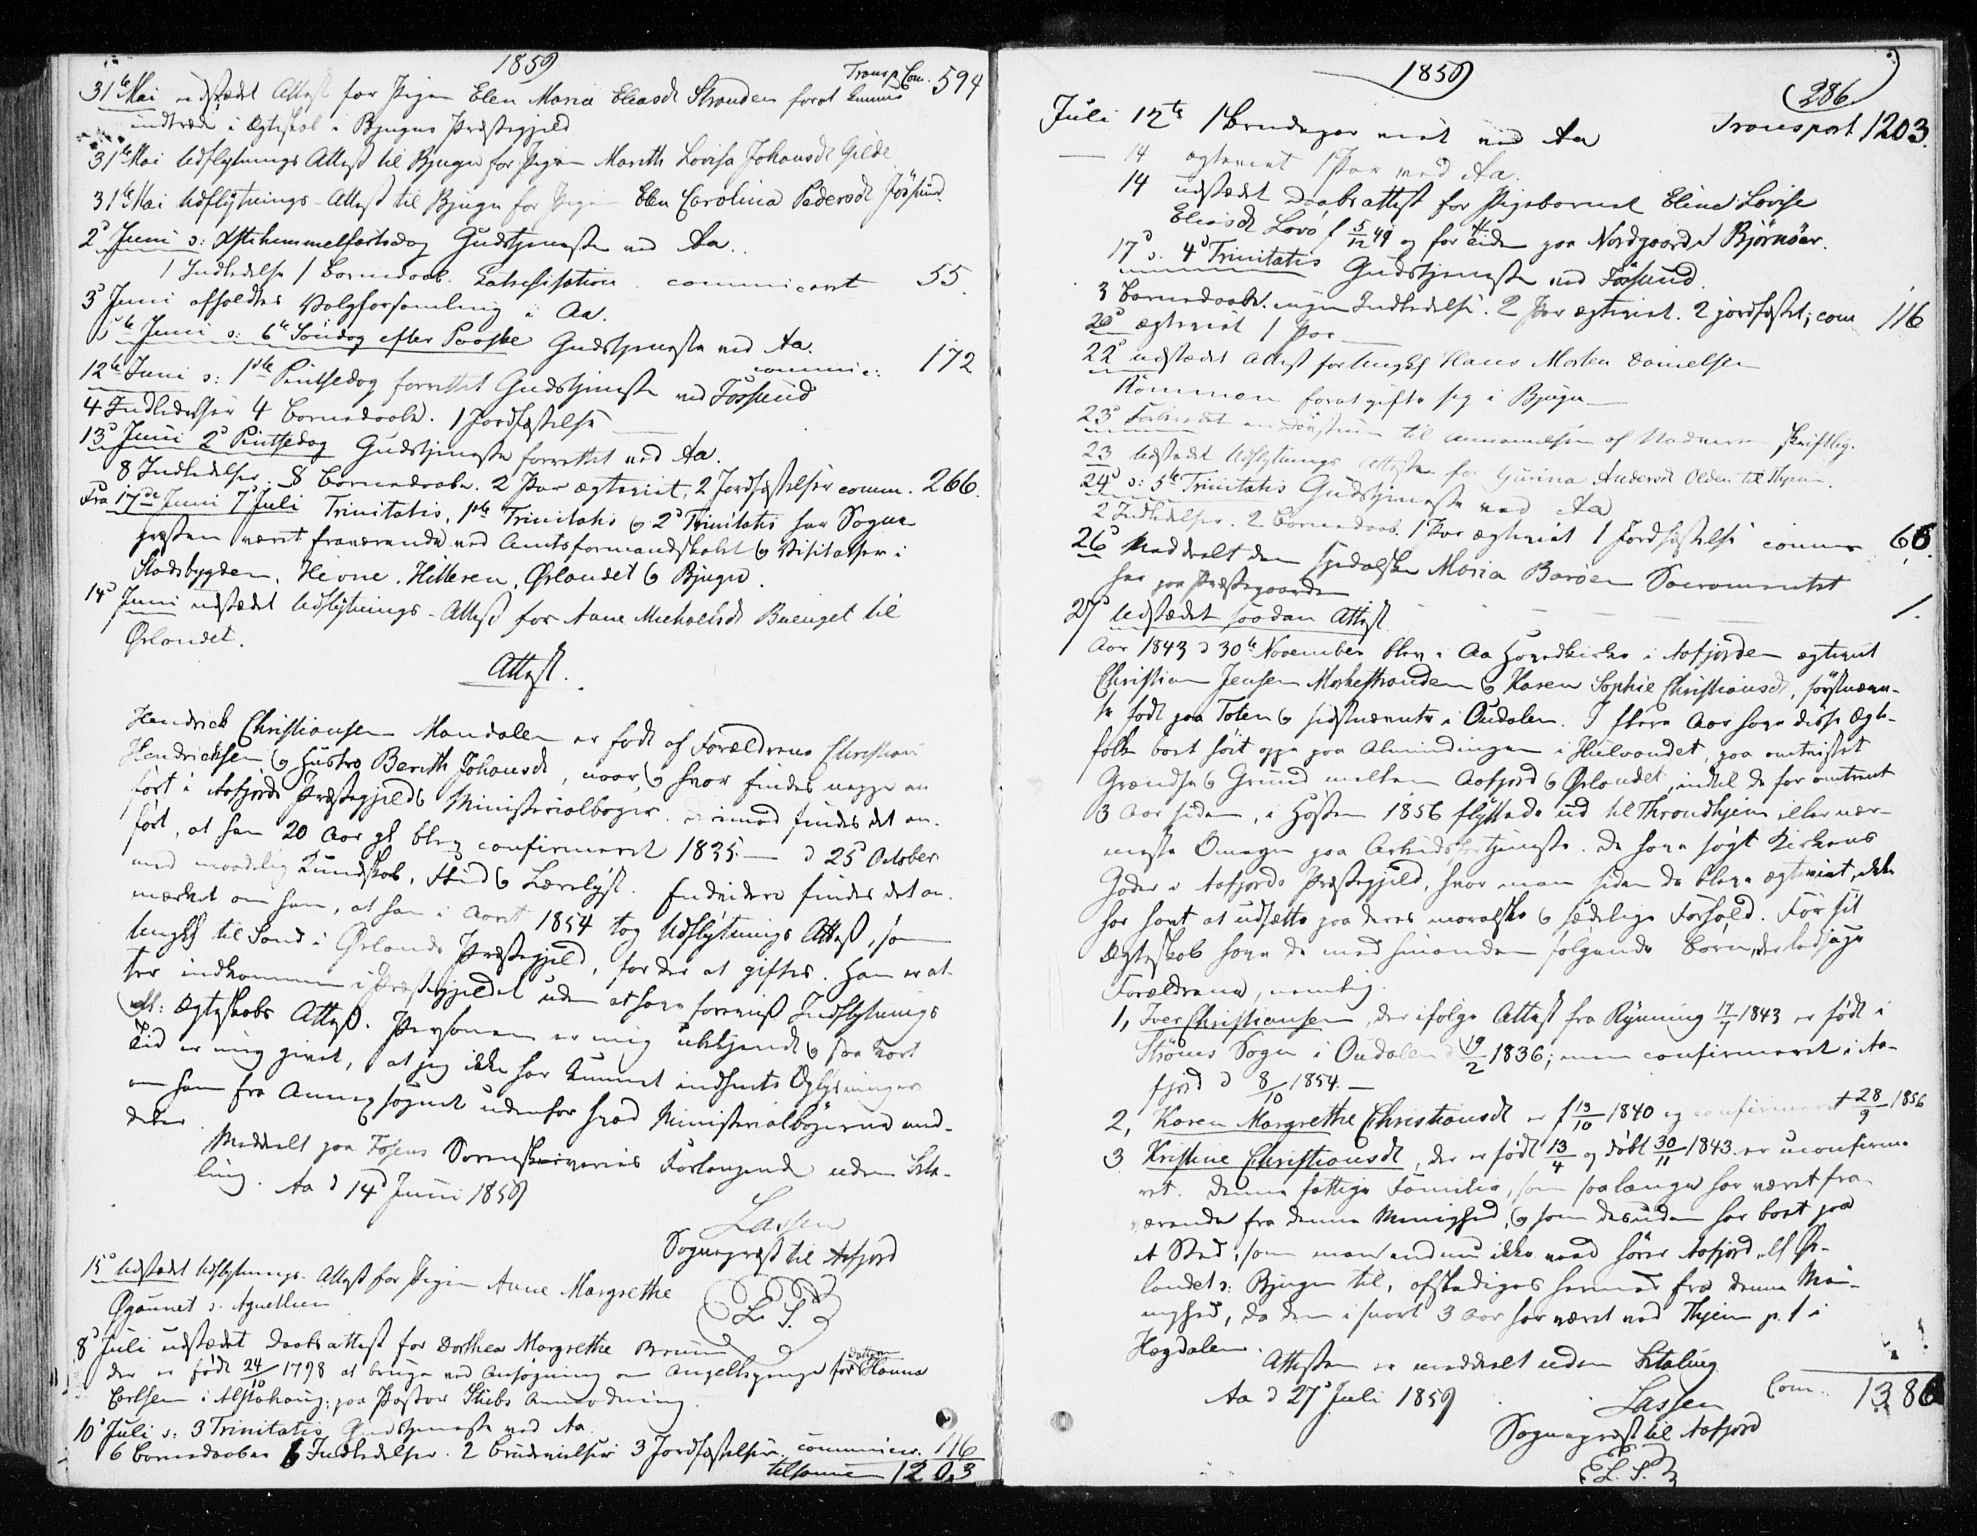 1859
Transp. Com. 594
31te Mai udstædt Attest for Pigen Elen Maria Eliasdt Stranden forat kunne
indtræde i Ægteskab i Bjugns Præstegjeld
31te Mai Udflytnings Attest til Bjugn for Pigen Mareth Lovisa Johansdt Gilde
31te Mai Udflytnings-Attest til Bjugn for Pigen Elen Carolina Pedersdt Jøssund.
2d Juni o: Christi himmelfartsdag Gudstjeneste ved Aa.
1 Indledelse 1 Barnedaab. Catechisation. communiceret 55.
3d Juni afholdtes Valgforsamling i Aa.
5te Juni o: 6te Söndag efter Paaske Gudstjeneste ved Aa.
communic: 172
12te Juni o: 1ste Pintsedag forrettet Gudstjeneste ved Jössund
4 Indledelser 4 Barnedaabe. 1 Jordfæstelse
13d Juni 2d Pintsedag Gudstjeneste forrettet ved Aa.
8 Indledelser. 8 Barnedaabe. 2 Par ægteviet, 2 Jordfæstelser comm. 266.
Fra 17de Juni 7 Juli Trinitatis, 1ste Trinitatis & 2d Trinitatis har Sogne
præsten været fraværende ved Amtsformandskabet & Visitatser i
Stadsbygden, Hevne, Hitteren, Ørlandet & Bjugn.
14d Juni udstædt Udflytnings-Attest for Anne Michaelsdt Buenget til
Ørlandet.
Attest.
Hendrick Christiansen Mandalen er født af Forældrene Christian
Hendricksen & Hustro Berith Johansdt, naar & hvor findes neppe an
ført i Aafjords Præstegjelds Ministerialbøger. derimod findes det an-
ført, at han 20 Aar gl blev confirmeret 1835.— d 25d October
med maadelig Kundskab, Flid & Lærelyst. Endvidere findes det an-
mærket om ham, at han i Aaret 1854 tog Udflytnings Attest, som
Ungkl til Sand i Ørlands Præstegjeld, for der at giftes. Han er at-
ter indkommen i Præstegjeldet uden at have foreviist Indflytnings
ell: Ægteskabs Attest. Personen er mig ubekjendt & saa kort
Tid er mig givet, at jeg ikke har kunnet indhente Oplysninger
om ham fra Annexsognet udenfor hvad Ministerialbøgerne med-
deler.
Meddelt paa Fosens Sorenskriveries Forlangende uden Beta-
ling. Aa d 14d Juni 1859
Lassen
Sognepræst til Aafjord
L. S.
15d Udstædt Udflytnings-Attest for Pigen Anne Margrethe
Øgaunet o. Agnethen
8d Juli udstædt Daabsattest for Dorthea Margrethe Brun
der er født 24/10 1798 at bruge ved Ansøgning om for Datteren Hanna
Carlsen i Alstahaug; paa Pastor Stubs Anmodning.
10d Juli o: 3 Trinitatis Gudstjeneste ved Aa.
6 Barnedaaber 6 Indledelser. 2 Brudevielser 3 Jordfæstelser. communic. 116
tilsammen 1203
1859
286.
Transport 1203.
Juli 12te 1 Brudepar viet ved Aa
— 14 ægteviet 1 Par ved Aa.
14 udstædt Daabsattest for Pigebarnet Eline Lovise
Eliasdt Lovö f 5/12 49 og for Tiden paa Nordgaard Björnöer.
17d o. 4d Trinitatis Gudstjeneste ved Jössund.
3 Barnedaabe. ingen Indledelse. 2 Par ægteviet. 2 jordfæstet; com 116
20d ægteviet 1 Par —
22d udstædt Attest for Ungkl Hans Morten Danielsen
Römmen forat gifte sig i Bjugn —
23d til Annammelsen af Nadveren skriftlig.
23 Udstædt Udflytnings Attest for Gurina Andersdt Olden til Thjem.
24d o: 5te Trinitatis Gudstjeneste ved Aa
2 Indledelser. 2 Barnedaab. 1 Par ægteviet 1 Jordfæstelse comm 66.
26d Meddeelt den spedalske Maria Baröen Sacramentet
her paa Præstegaarden 1.
27d Udstædt saadan Attest
Aar 1843 d 30te November blev i Aa Hovedkirke i Aafjorden ægteviet
Christian Jensen Morkestranden & Karen Sophie Christiansdt, förstnævn-
te født paa Toten & sidstnævnte i Oudalen. I flere Aar have disse Ægte-
folk boet höit oppe paa Almindingen i Hulvandet, paa omtvistet
Grændse & Grund mellem Aafjord & Ørlandet, indtil de for omtrent
3 Aar siden, i Hösten 1856 flyttede ud til Throndhjem eller nær-
meste Omegn paa Arbeidsfortjeneste. De have søgt Kirkens
Goder i Aafjords Præstegjeld, hvor man siden de bleve ægteviet, ikke
har havt at udsætte paa deres moralske & sædelige Forhold. For sit
Ægteskab have de med hinanden følgende Børn, der ledsage
Forældrene, nemlig.
1, Iver Christiansen, der ifølge Attest fra Rynning 17/7 1843 er født i
Ströms Sogn i Oudalen d 19/2 1836; men confirmeret i Aa-
fjord d 8/10 1854.—
2, Karen Margrethe Christiansdt er f 13/10 1840 og confirmeret 28/9 1856
3 Kristine Christiansdt, der er født 13/4 og døbt 30/11 1843 er uconfirme
ret. Denne fattige Familie, som saalænge har været fra-
værende fra denne Menighed, & som desuden har boet paa
et Sted, som man endnu ikke veed hører Aafjord, ell Ør-
landet o: Bjugn til, afskediges hermed fra denne Me-
nighed, da den i snart 3 Aar har været ved Thjem p. t i
Hægdalen.
Attesten er meddeelt uden Betaling.
Aa d 27d Juli 1859
Com. 1386
Lassen
Sognepræst til Aafjord
L. S.